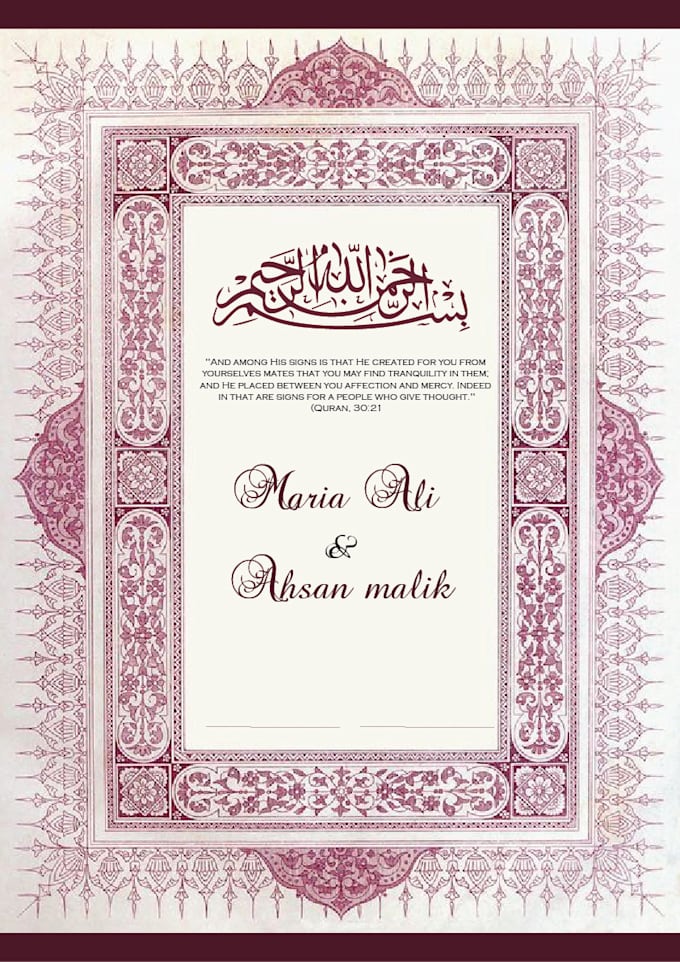 بسم الله الرحمن الرحيم
"And among His signs is that He created for you from
yourselves mates that you may find tranquility in them;
and He placed between you affection and mercy. Indeed
in that are signs for a people who give thought."
(Quran, 30:21
Maria Ali
&
Ahsan malik